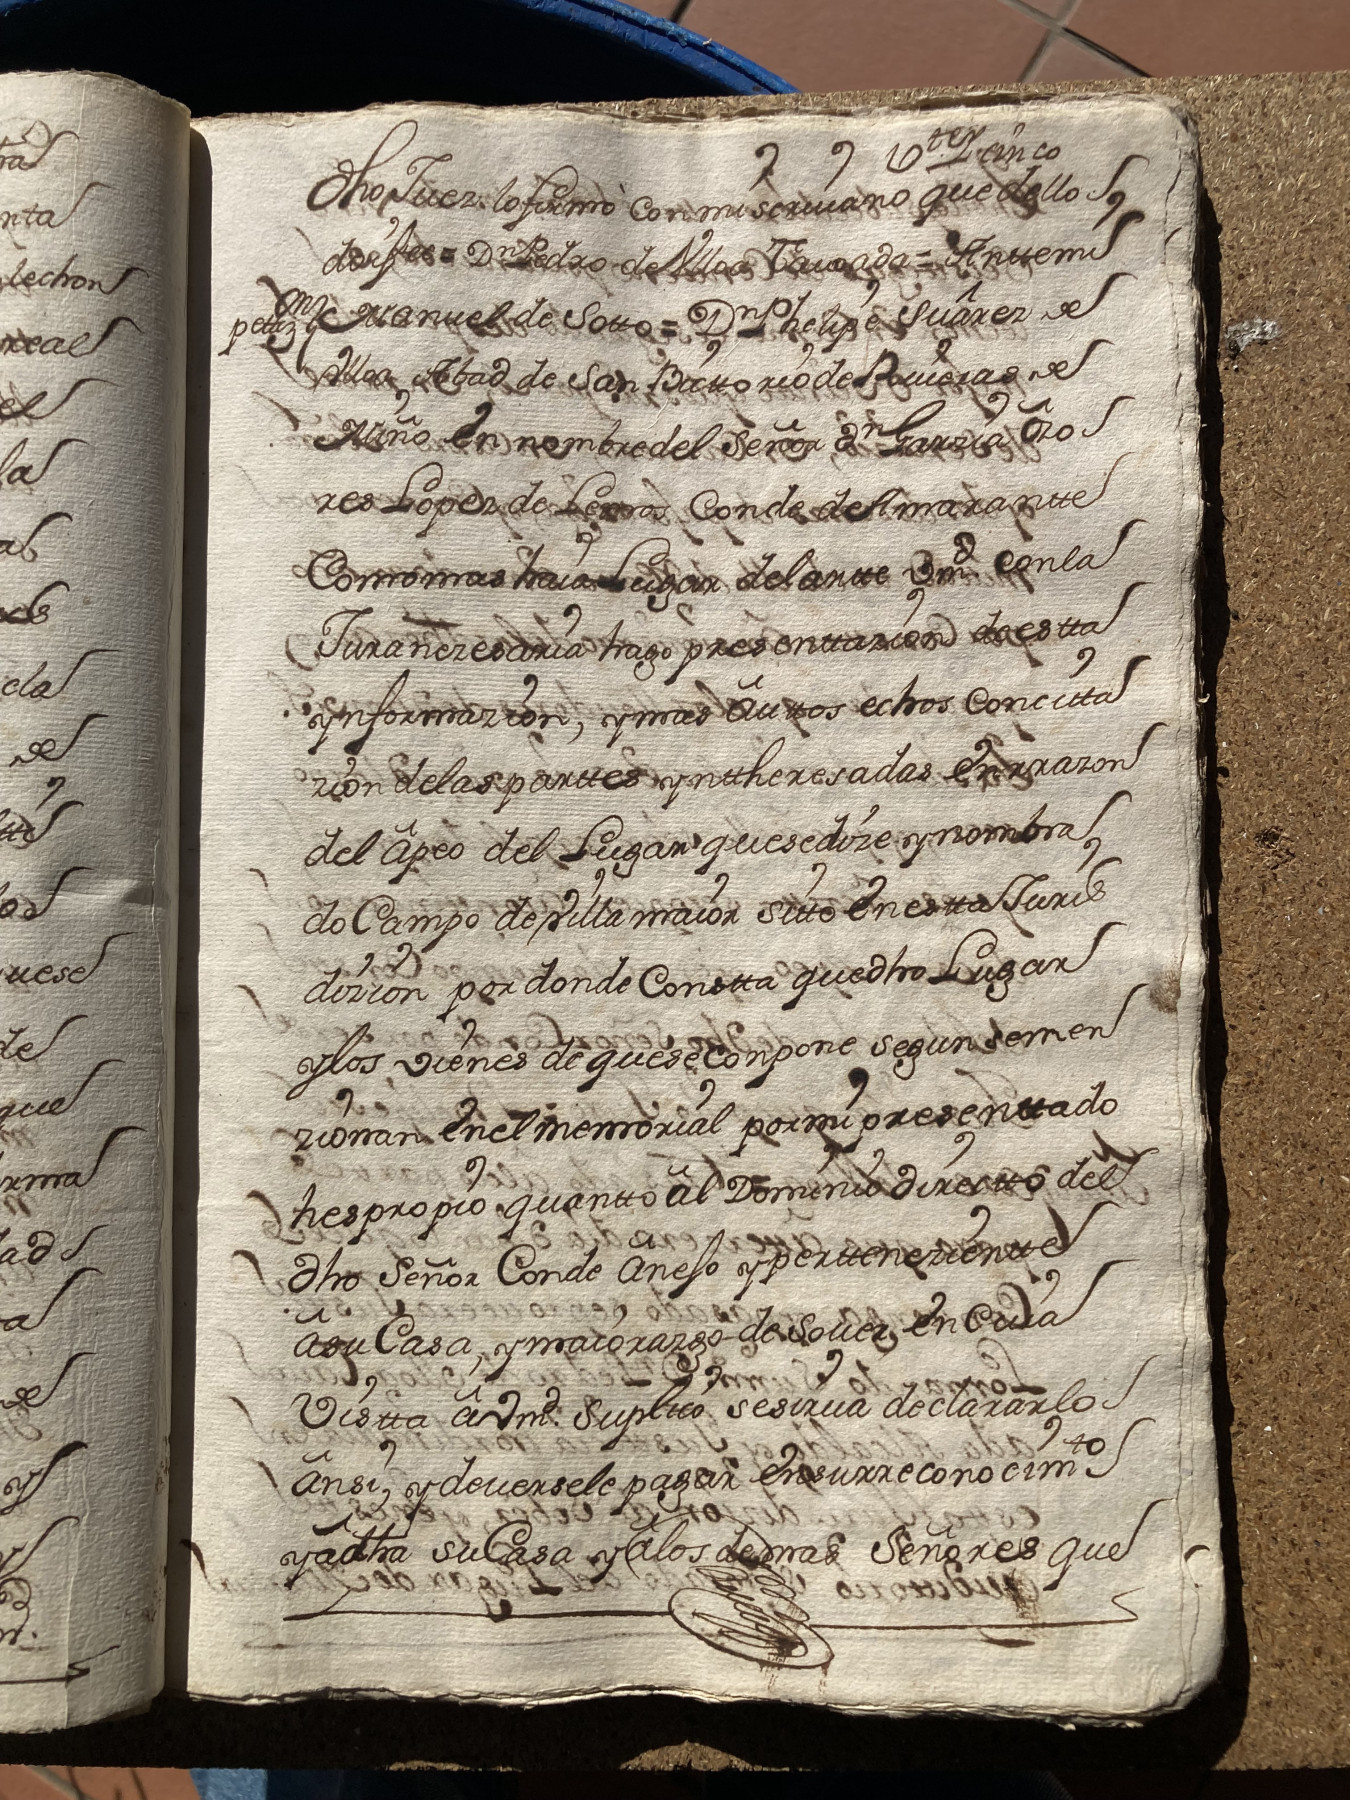 Vtey cinco
dho Juez lo firmo con mi scriuano que dello
doi fee = Dn Pedro de Ulloa Tauoada = Anttemi
pettizon Manuel de Sotto = Dn Phelipe Suárez de
Ulloa Abad de San Bittorio de Riuieras de
Miño en nombre del Señor Dn Garzia Ozo
res Lopez de Lemos Conde de Amarantte
Como mas haia Lugar delantte Vmd con la
Jura nezesaria hago presenttazion de estta
ynformazion, y mas auttos echos con citta
zion de las parttes ynttheresadas en rrazon
del apeo del Lugar que se dize y nombra
do Campo de Villamaior sitto en estta Juris
dizion por donde Constta que dho Lugar
y los vienes de que se conpone segun se men
zionan en el memorial por mi presenttado
hes propio quantto al Dominio direitto del
dho Señor Conde aneso y pertteneziente
a su Casa, y maiorazgo de Souer en Cuia
Vistta a Vmd. Supltto se sirua declararlo
ansi, y deuersele pagar en su rreconocimto
y a dha su Casa y a los demas Señores que